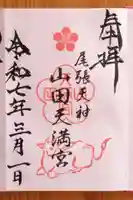 奉拝
尾張天神
山田天満宮
令和七年三月一日